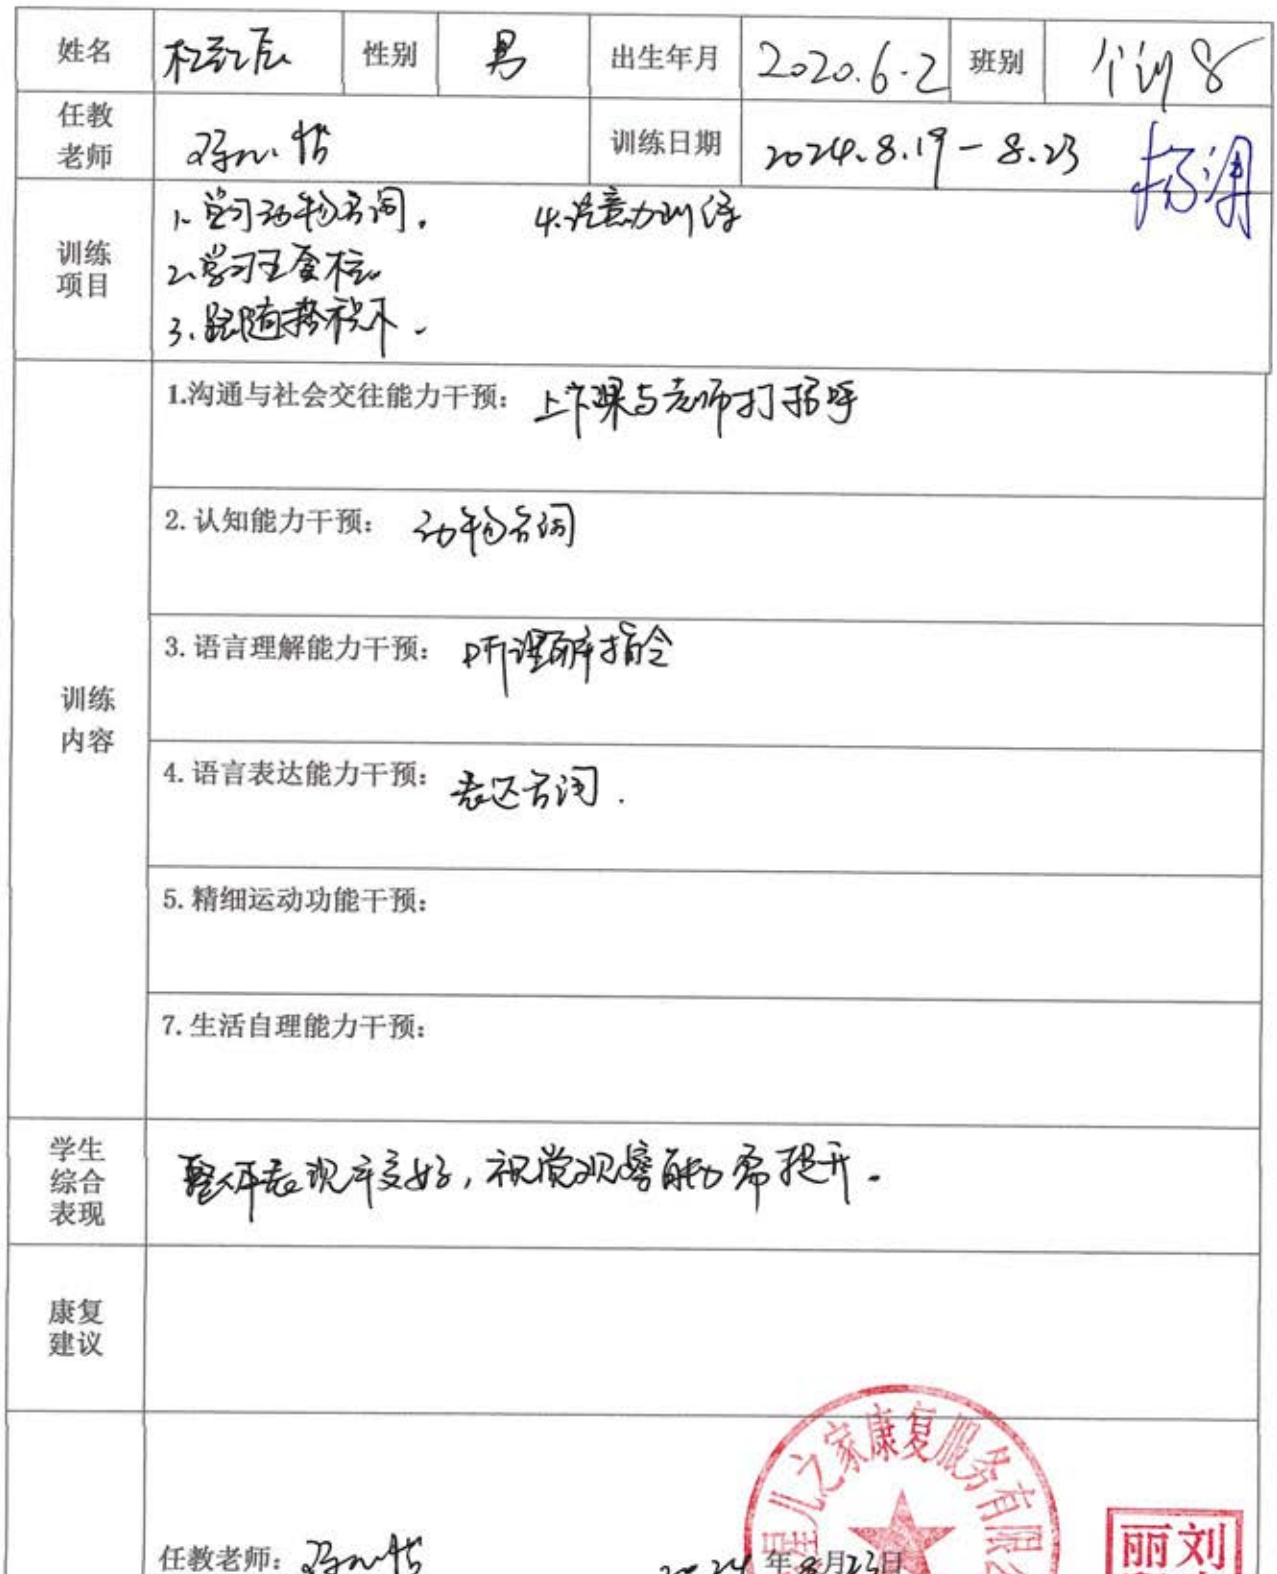 姓名 性别 男 出生年月 2020.6.2 班别 个训8
任教老师 训练日期 2024.8.19-8.23
训练项目
1.学习动物名词. 4.注意力训练
2.学习
3.跟随搭积木.
训练内容
1.沟通与社会交往能力干预: 上下课与老师打招呼
2.认知能力干预: 动物名词
3.语言理解能力干预: 听理解指令
4.语言表达能力干预: 表达名词.
5.精细运动功能干预:
7.生活自理能力干预:
学生综合表现 整体表现较好,视觉观察能力需提升.
康复建议
任教老师: 2024年8月23日
星儿之家康复服务有限公
刘
丽